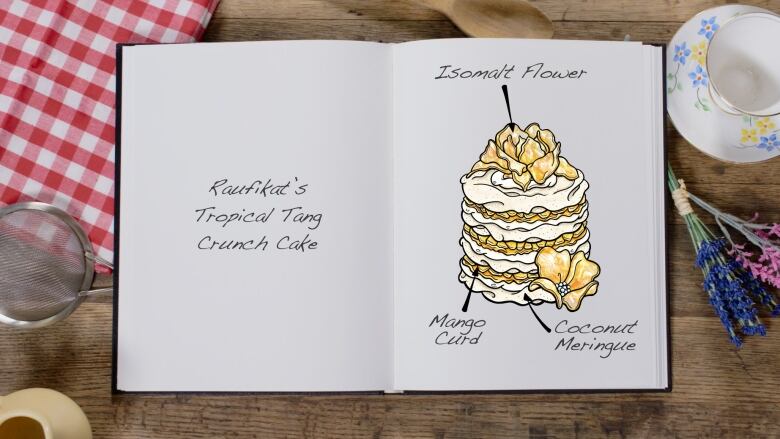 Raufikat's
Tropical Tang
Crunch Cake
Isomalt Flower
Mango
Curd
Coconut
Meringue